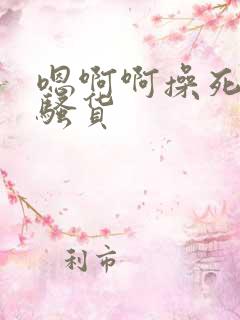 嗯啊啊操死
骚货
利市